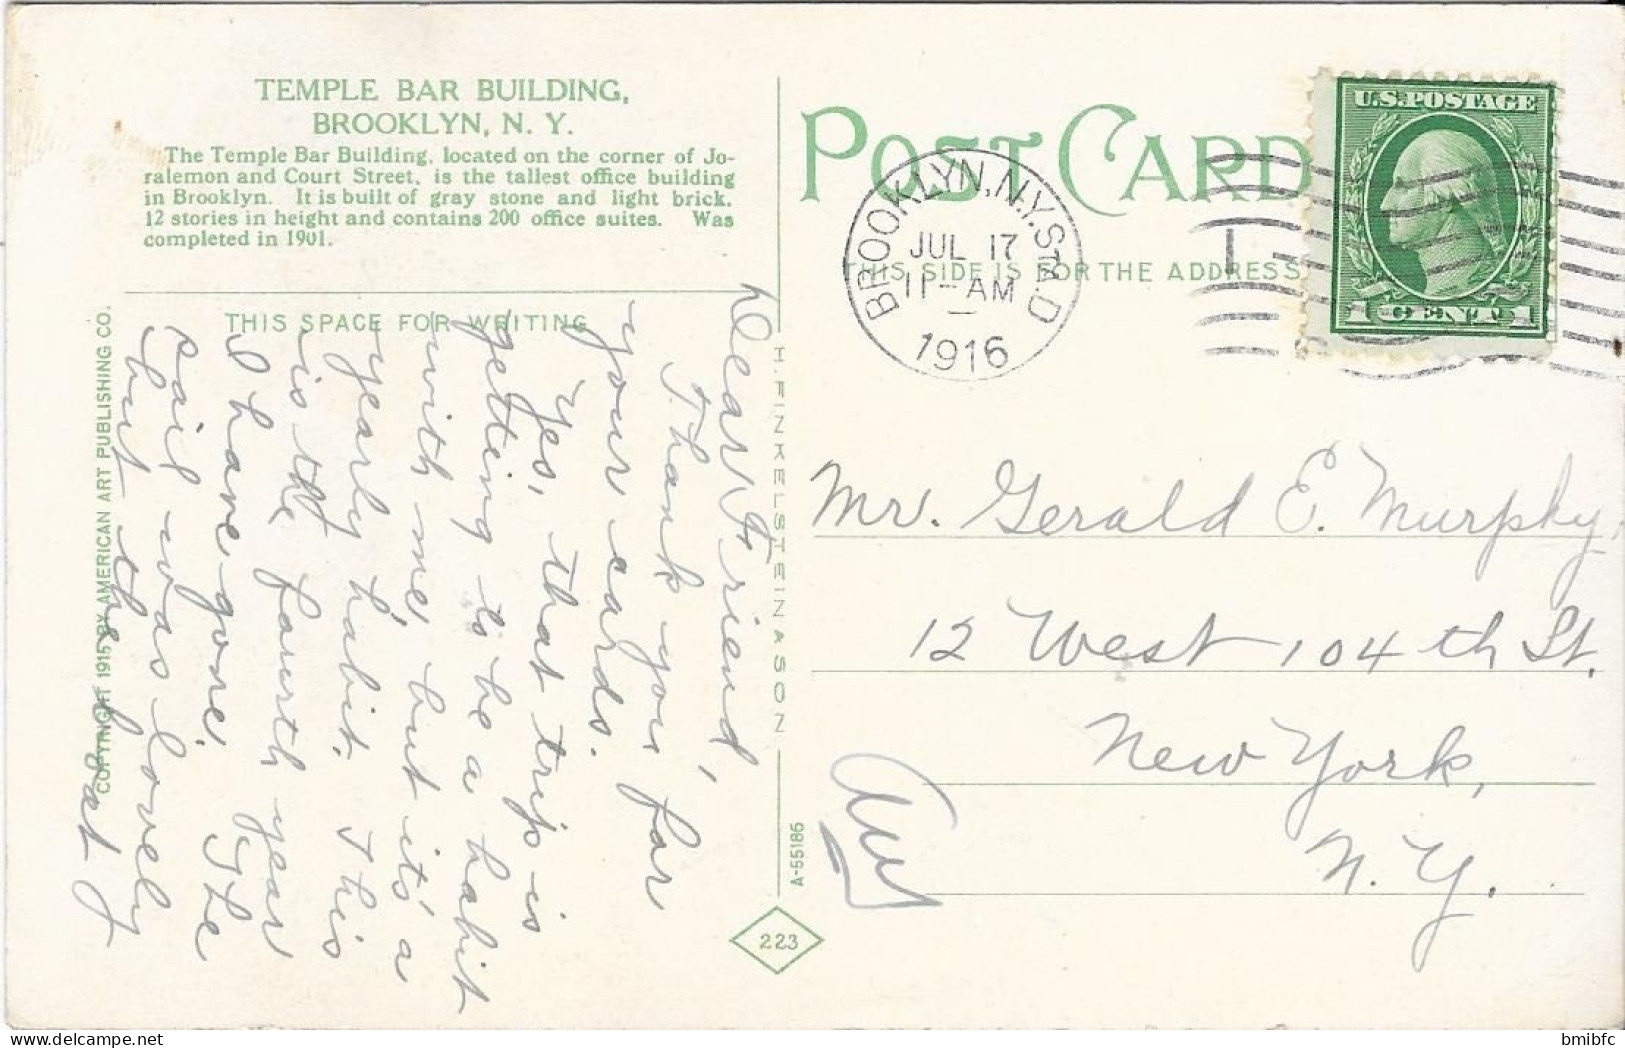 TEMPLE BAR BUILDING,
BROOKLYN, N. Y.
The Temple Bar Building, located on the corner of Jo-
ralemon and Court Street, is the tallest office building
in Brooklyn. It is built of gray stone and light brick.
12 stories in height and contains 200 office suites. Was
completed in 1901.
THIS SPACE FOR WRITING
Dear Friend,
Thank you for
your cards.
Yes, that trip is
getting to be a habit
with me, but it's a
yearly habit. This
is the fourth year
I have gone. The
sail was lovely
but the boat
COPYRIGHT 1915 BY AMERICAN ART PUBLISHING CO.
H. FINKELSTEIN & SON
A-55186
223
POST CARD
THIS SIDE IS FOR THE ADDRESS
BROOKLYN, N.Y. STA. D
JUL 17
11-AM
1916
1
U.S. POSTAGE
1 CENT 1
Mr. Gerald E. Murphy,
12 West 104th St.
New York,
N. Y.
bmibfc